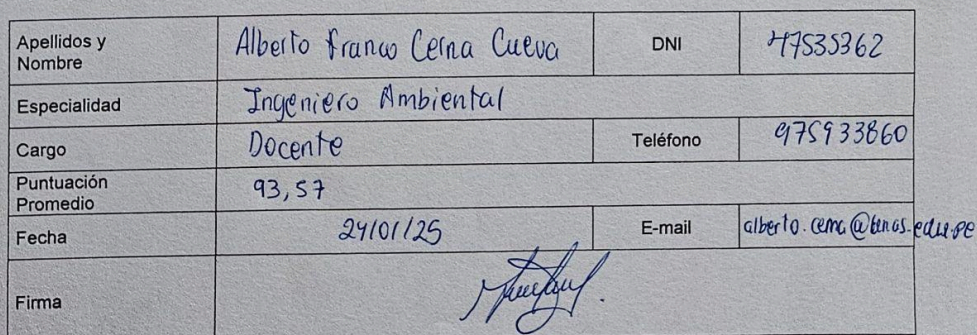 Apellidos y Nombre Alberto Franco Cerna Cueva DNI 47535362
Especialidad Ingeniero Ambiental
Cargo Docente Teléfono 975933860
Puntuación Promedio 93,57
Fecha 24/01/25 E-mail alberto.cerna@unas.edu.pe
Firma